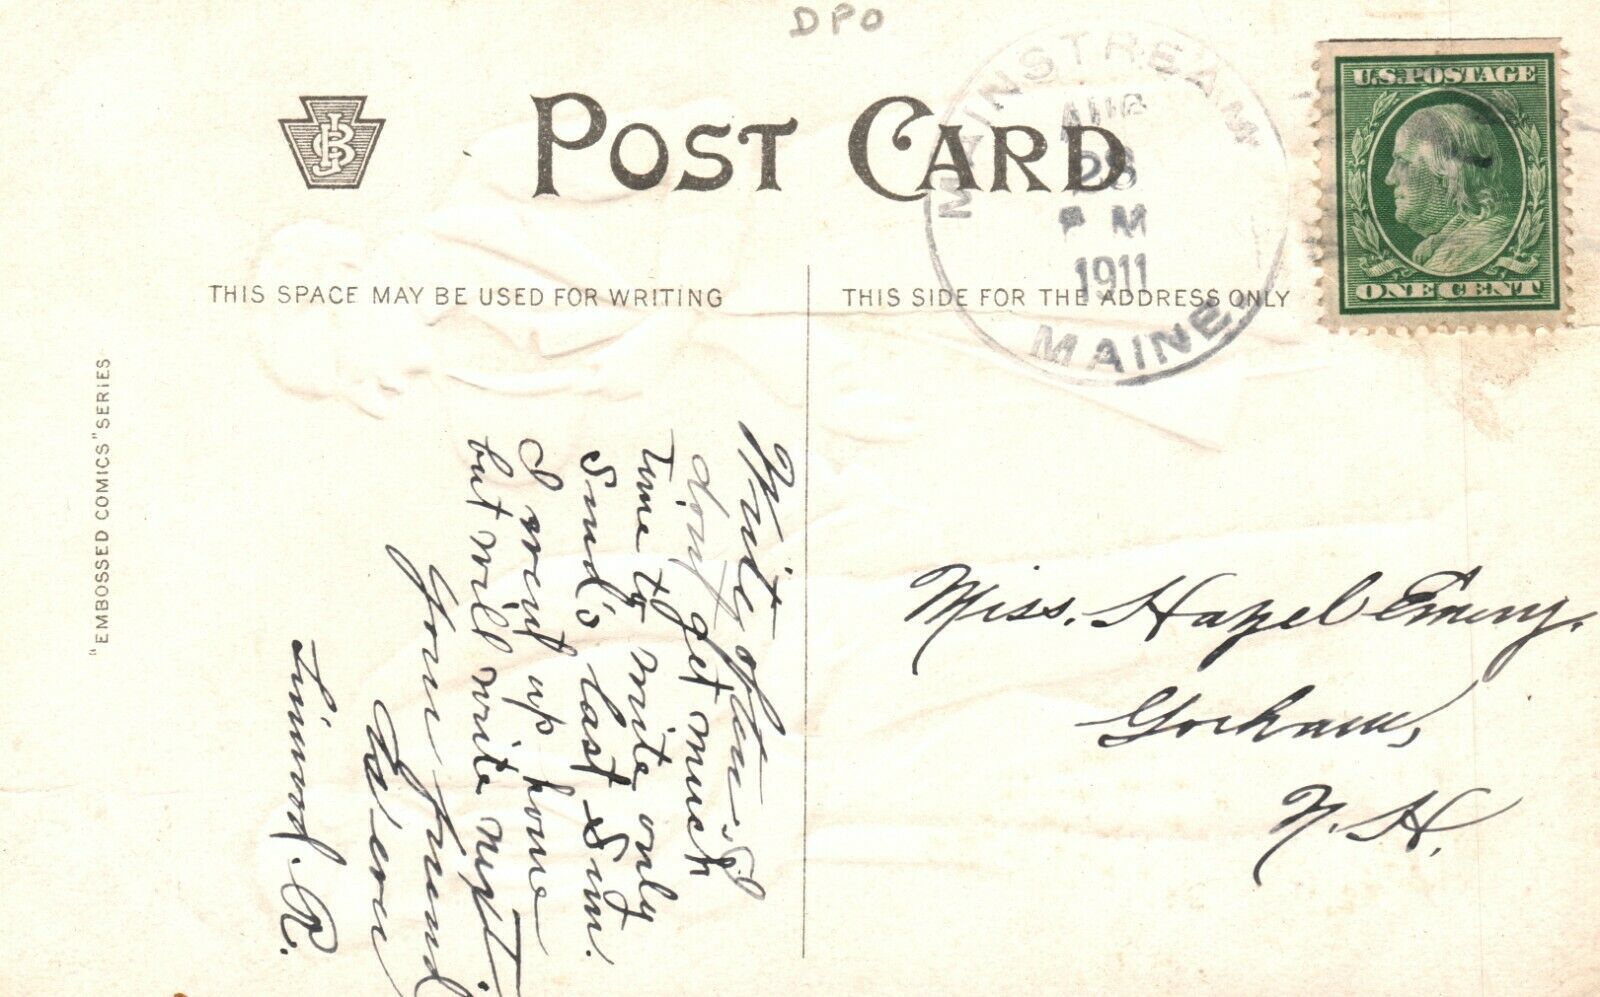 DPO
POST CARD
MAINSTREAM
AUG
28
P M
1911
MAINE.
U.S. POSTAGE
ONE CENT
THIS SPACE MAY BE USED FOR WRITING
THIS SIDE FOR THE ADDRESS ONLY
"EMBOSSED COMICS" SERIES
Write often, I
dont get much
time to write only
Sund's last Sun.
I went up home
but will write next.
Your friend
Linwood. R.
Miss. Hazel Emery.
Gorham,
N. H.